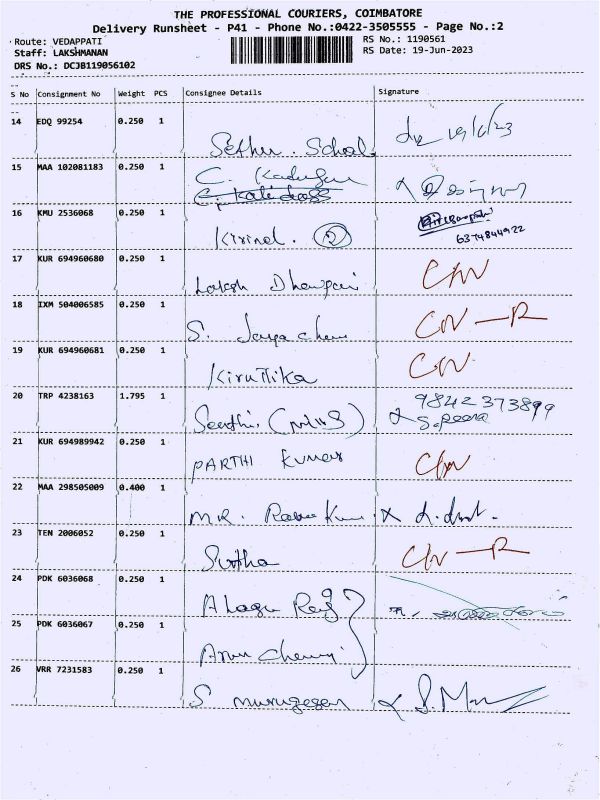 THE PROFESSIONAL COURIERS, COIMBATORE
Delivery Runsheet - P41 - Phone No.:0422-3505555 - Page No.:2
Route: VEDAPPATI RS No.: 1190561
Staff: LAKSHMANAN RS Date: 19-Jun-2023
DRS No.: DCJB119056102
S No Consignment No Weight PCS Consignee Details Signature
14 EDQ 99254 0.250 1
Sethu. School 19/6/23
15 MAA 102081183 0.250 1 C.
C. Kalidoss
16 KMU 2536068 0.250 1
Kirinal. 2 6374844922
17 KUR 694960680 0.250 1
C/N
18 IXM 504006585 0.250 1
S. Jaya CN - R
19 KUR 694960681 0.250 1
Kiruttika CN
20 TRP 4238163 1.795 1 9842373899
S. Peera
21 KUR 694989942 0.250 1
PARTHI Kumar C/N
22 MAA 298505009 0.400 1
MR. X
23 TEN 2006052 0.250 1
C/N - R
24 PDK 6036068 0.250 1
Alagu Raj
25 PDK 6036067 0.250 1
Arun
26 VRR 7231583 0.250 1
S murugesan